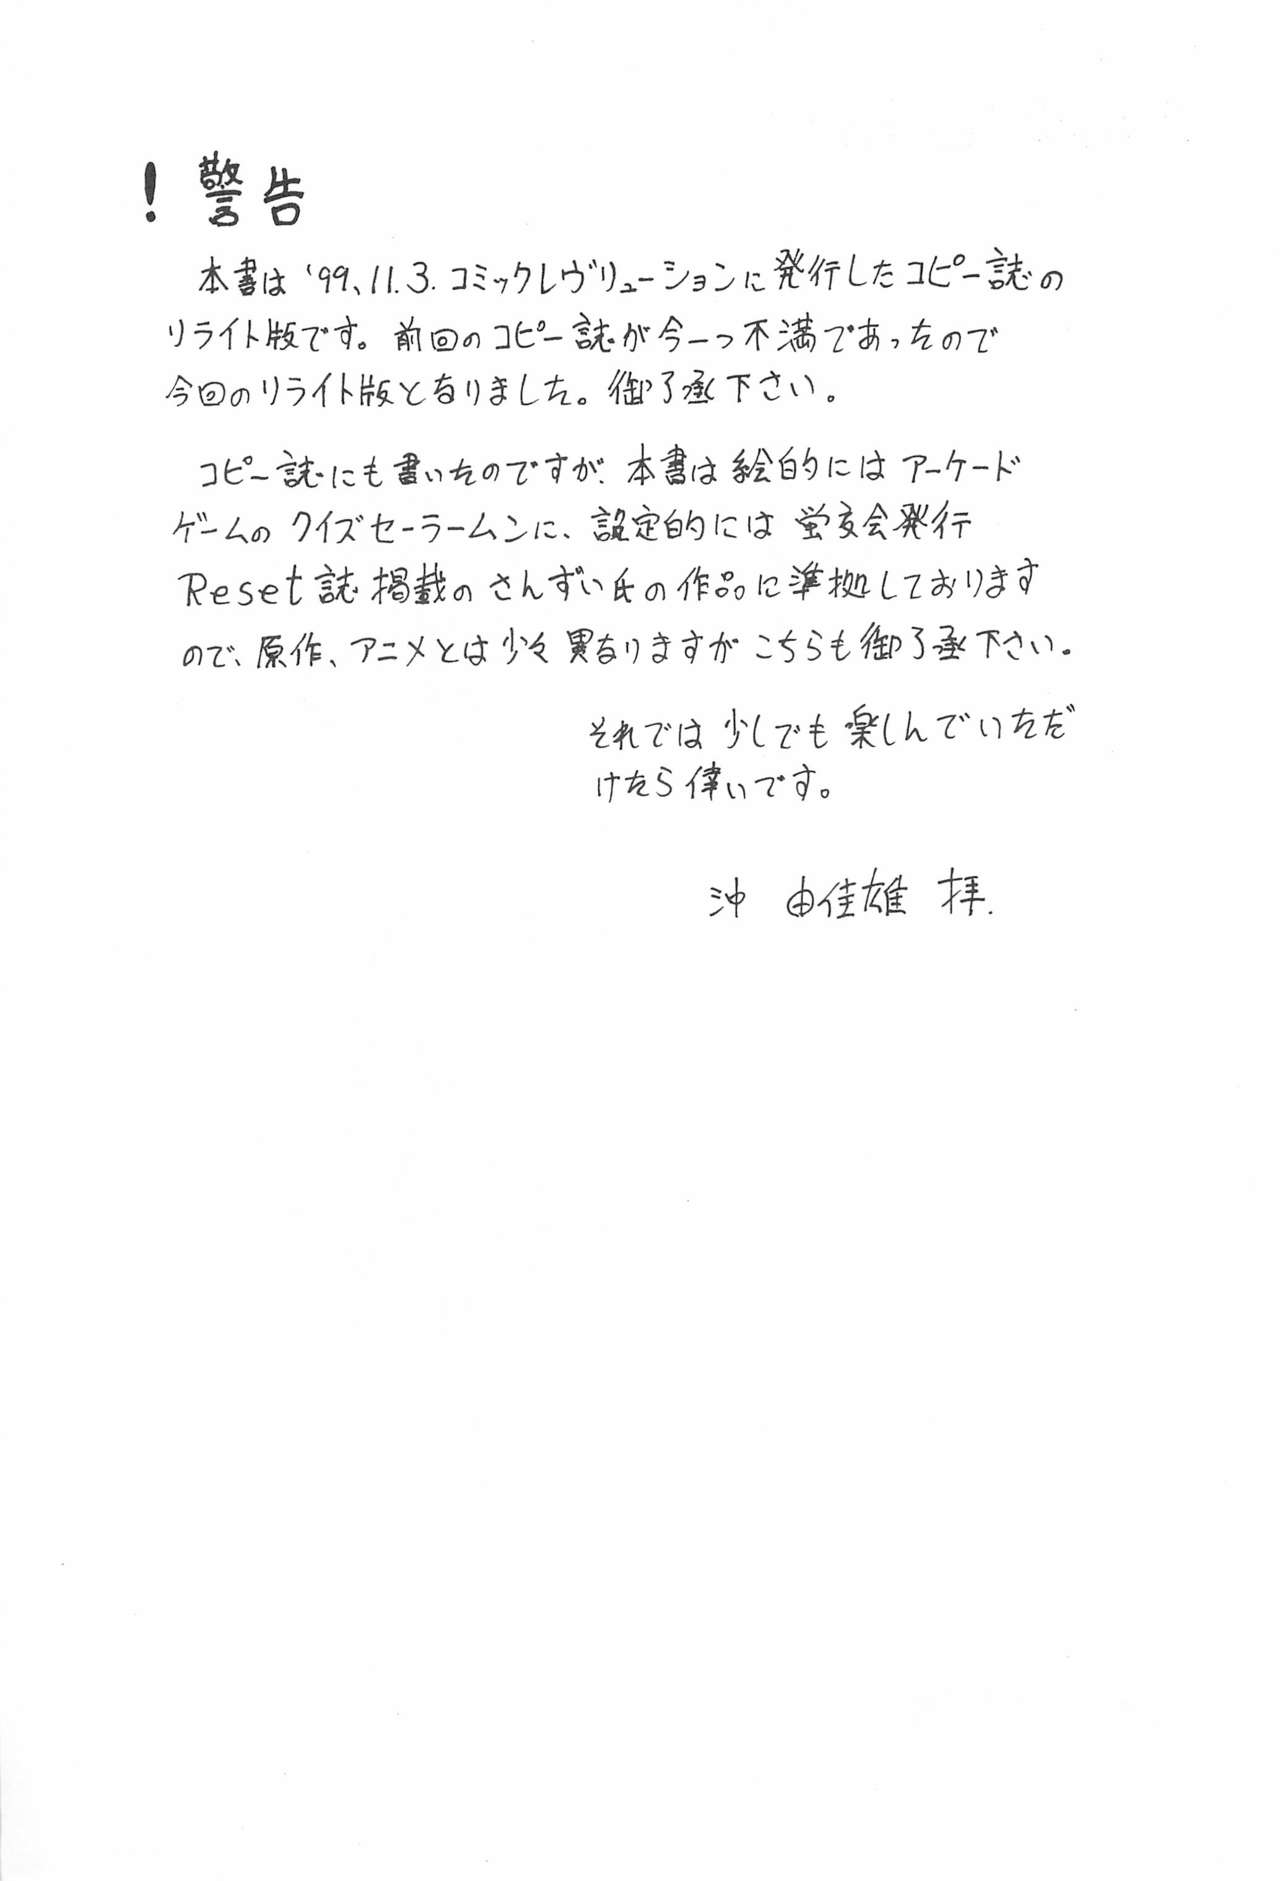 ! 警告
本書は '99、11.3. コミックレヴリューションに発行したコピー誌の
リライト版です。前回のコピー誌が今一つ不満であったので
今回のリライト版となりました。御了承下さい。
コピー誌にも書いたのですが、本書は絵的にはアーケード
ゲームのクイズセーラームンに、設定的には蛍友会発行
Reset誌掲載のさんずい氏の作品に準拠しております
ので、原作、アニメとは少々異なりますがこちらも御了承下さい。
それでは少しでも楽しんでいただ
けたら倖いです。
沖 由佳雄 拝.